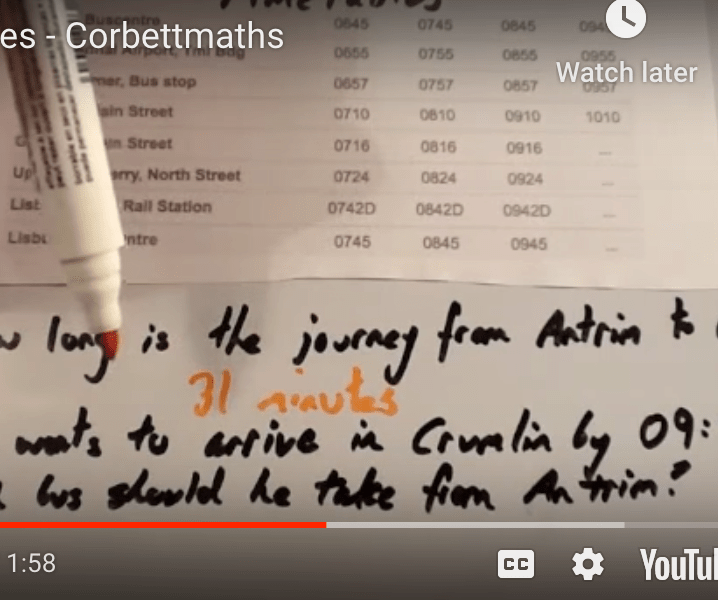 es - Corbettmaths
Watch later
Buscentre 0645 0745 0845
0655 0755 0855 0955
mer, Bus stop 0657 0757 0857 0957
ain Street 0710 0810 0910 1010
n Street 0716 0816 0916 ...
Up erry, North Street 0724 0824 0924 ...
Rail Station 0742D 0842D 0942D ...
Lisbu ntre 0745 0845 0945 ...
w long is the journey from Antrim to
31 minutes
wants to arrive in Crumlin by 09:
bus should he take from Antrim?
1:58
CC
YouTu